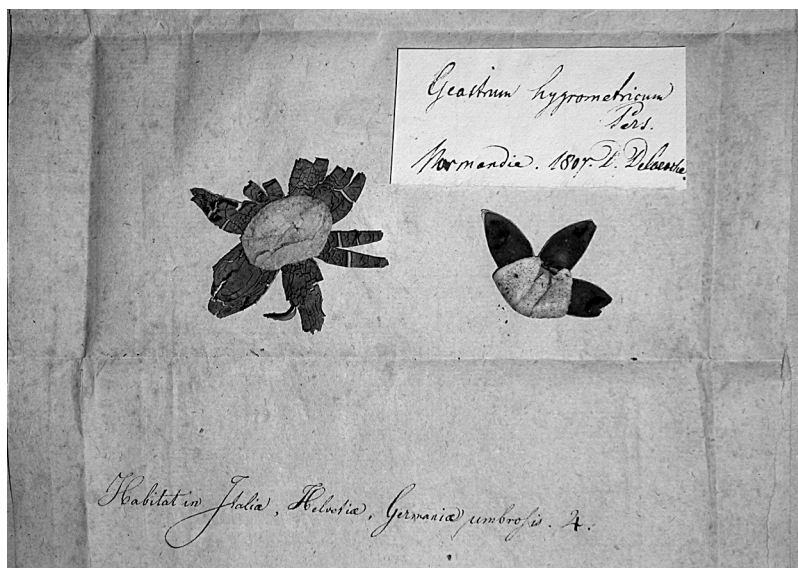 Geastrum hygrometricum
Pers.
Normandie. 1807. D. Delaroche.
Habitat in Italiæ, Helvetiæ, Germaniæ umbrosis. 4.